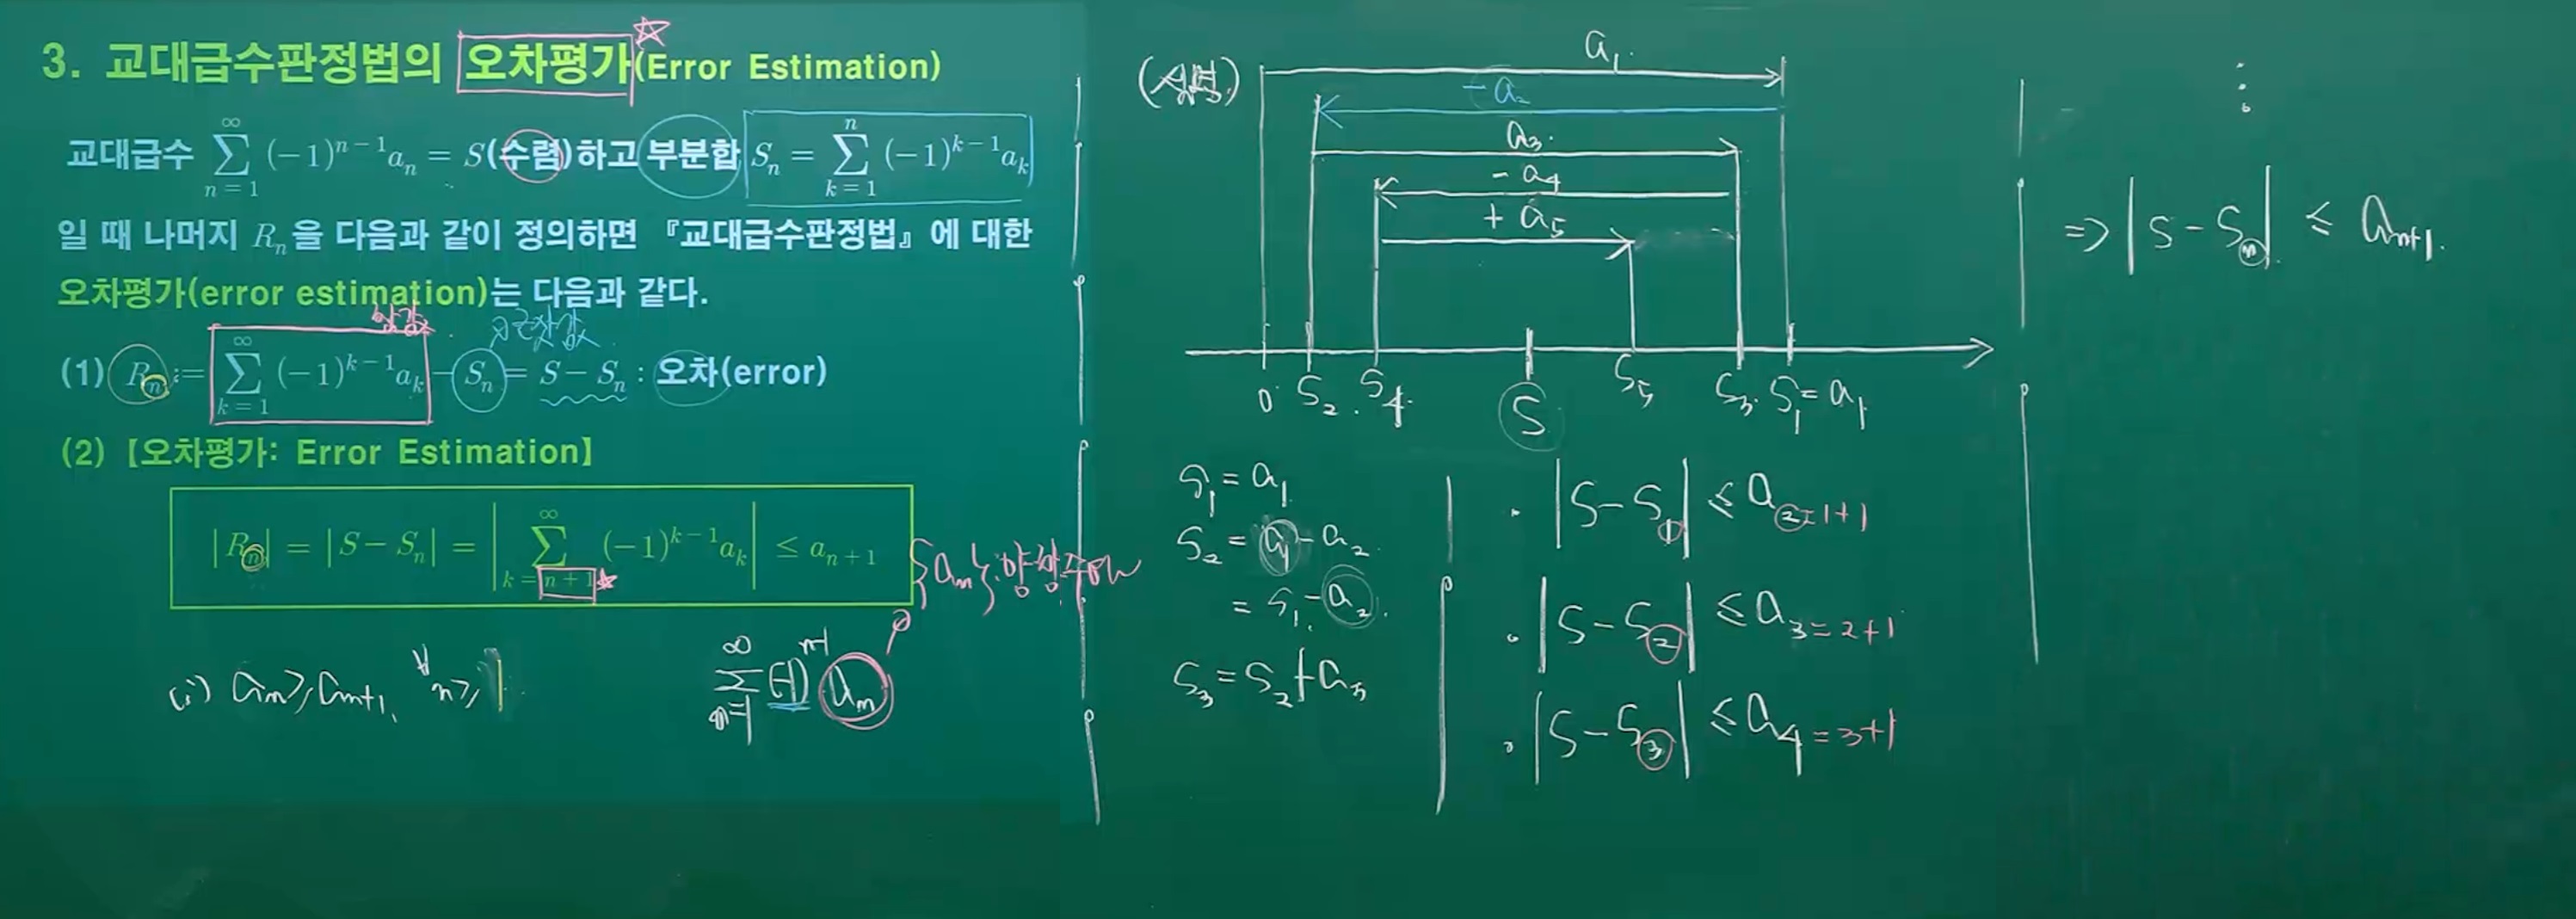 3. 교대급수판정법의 오차평가(Error Estimation)
교대급수 ∑_{n=1}^{∞} (-1)^{n-1}a_n = S(수렴)하고 부분합 S_n = ∑_{k=1}^{n} (-1)^{k-1}a_k
일 때 나머지 R_n을 다음과 같이 정의하면 『교대급수판정법』에 대한
오차평가(error estimation)는 다음과 같다.
참값
근삿값
(1) R_n := ∑_{k=1}^{∞} (-1)^{k-1}a_k - S_n = S - S_n : 오차(error)
(2) 【오차평가: Error Estimation】
|R_n| = |S - S_n| = |∑_{k=n+1}^{∞} (-1)^{k-1}a_k| ≤ a_{n+1}
{a_n}: 양항수열
(i) a_n ≥ a_{n+1}, ∀n ≥ 1
∑_{n=1}^{∞} (-1)^{n-1} a_n
(설명)
a_1
-a_2
a_3
-a_4
+a_5
0 S_2 S_4 S S_5 S_3 S_1 = a_1
S_1 = a_1
S_2 = a_1 - a_2
= S_1 - a_2
S_3 = S_2 + a_3
|S - S_1| ≤ a_2=1+1
|S - S_2| ≤ a_3=2+1
|S - S_3| ≤ a_4=3+1
⋮
⇒ |S - S_n| ≤ a_{n+1}.